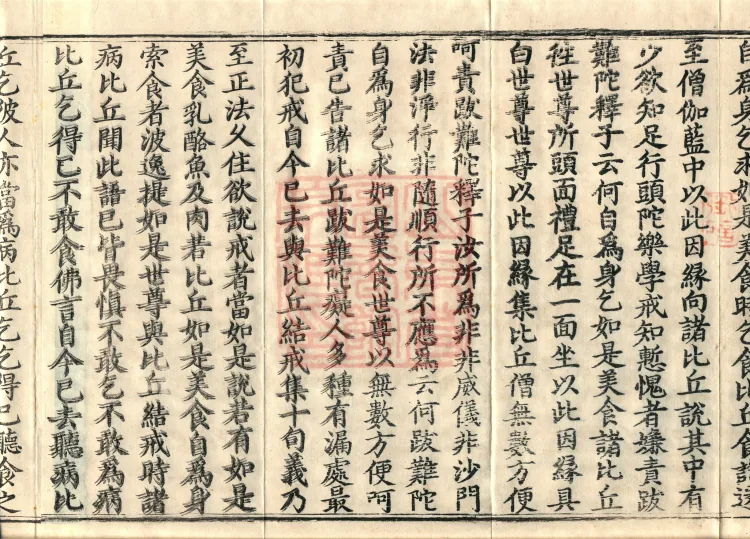 至僧伽藍中以此因緣向諸比丘說其中有
少欲知足行頭陀樂學戒知慙愧者嫌責跋
難陀釋子云何自為身乞如是美食諸比丘
往世尊所頭面禮足在一面坐以此因緣具
白世尊世尊以此因緣集比丘僧無數方便
呵責跋難陀釋子汝所為非非威儀非沙門
法非淨行非隨順行所不應為云何跋難陀
自為身乞求如是美食世尊以無數方便呵
責已告諸比丘跋難陀癡人多種有漏處最
初犯戒自今已去與比丘結戒集十句義乃
至正法久住欲說戒者當如是說若有如是
美食乳酪魚及肉若比丘如是美食自為身
索食者波逸提如是世尊與比丘結戒時諸
病比丘聞此語已皆畏慎不敢乞不敢為病
比丘乞得已不敢食佛言自今已去聽病比
丘乞彼人亦當為病比丘乞乞得已聽食之